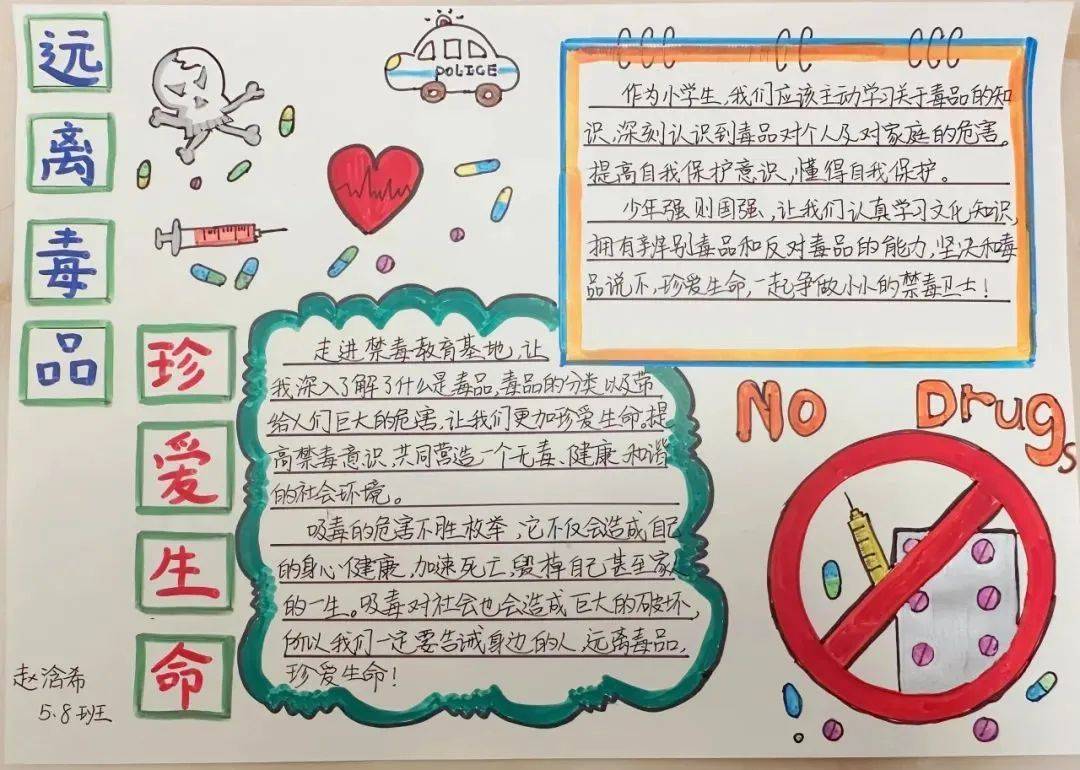 远离毒品
珍爱生命
POLICE
作为小学生,我们应该主动学习关于毒品的知
识,深刻认识到毒品对个人及对家庭的危害。
提高自我保护意识,懂得自我保护。
少年强则国强,让我们认真学习文化知识,
拥有辨别毒品和反对毒品的能力,坚决和毒
品说不,珍爱生命,一起争做小小的禁毒卫士!
走进禁毒教育基地,让
我深入了解了什么是毒品,毒品的分类以及带
给人们巨大的危害,让我们更加珍爱生命。提
高禁毒意识,共同营造一个无毒、健康、和谐
的社会环境。
吸毒的危害不胜枚举,它不仅会造成自己
的身心健康,加速死亡,毁掉自己甚至家人
的一生。吸毒对社会也会造成巨大的破坏,
所以我们一定要告诫身边的人,远离毒品,
珍爱生命!
No Drugs
赵浛希
5.8班